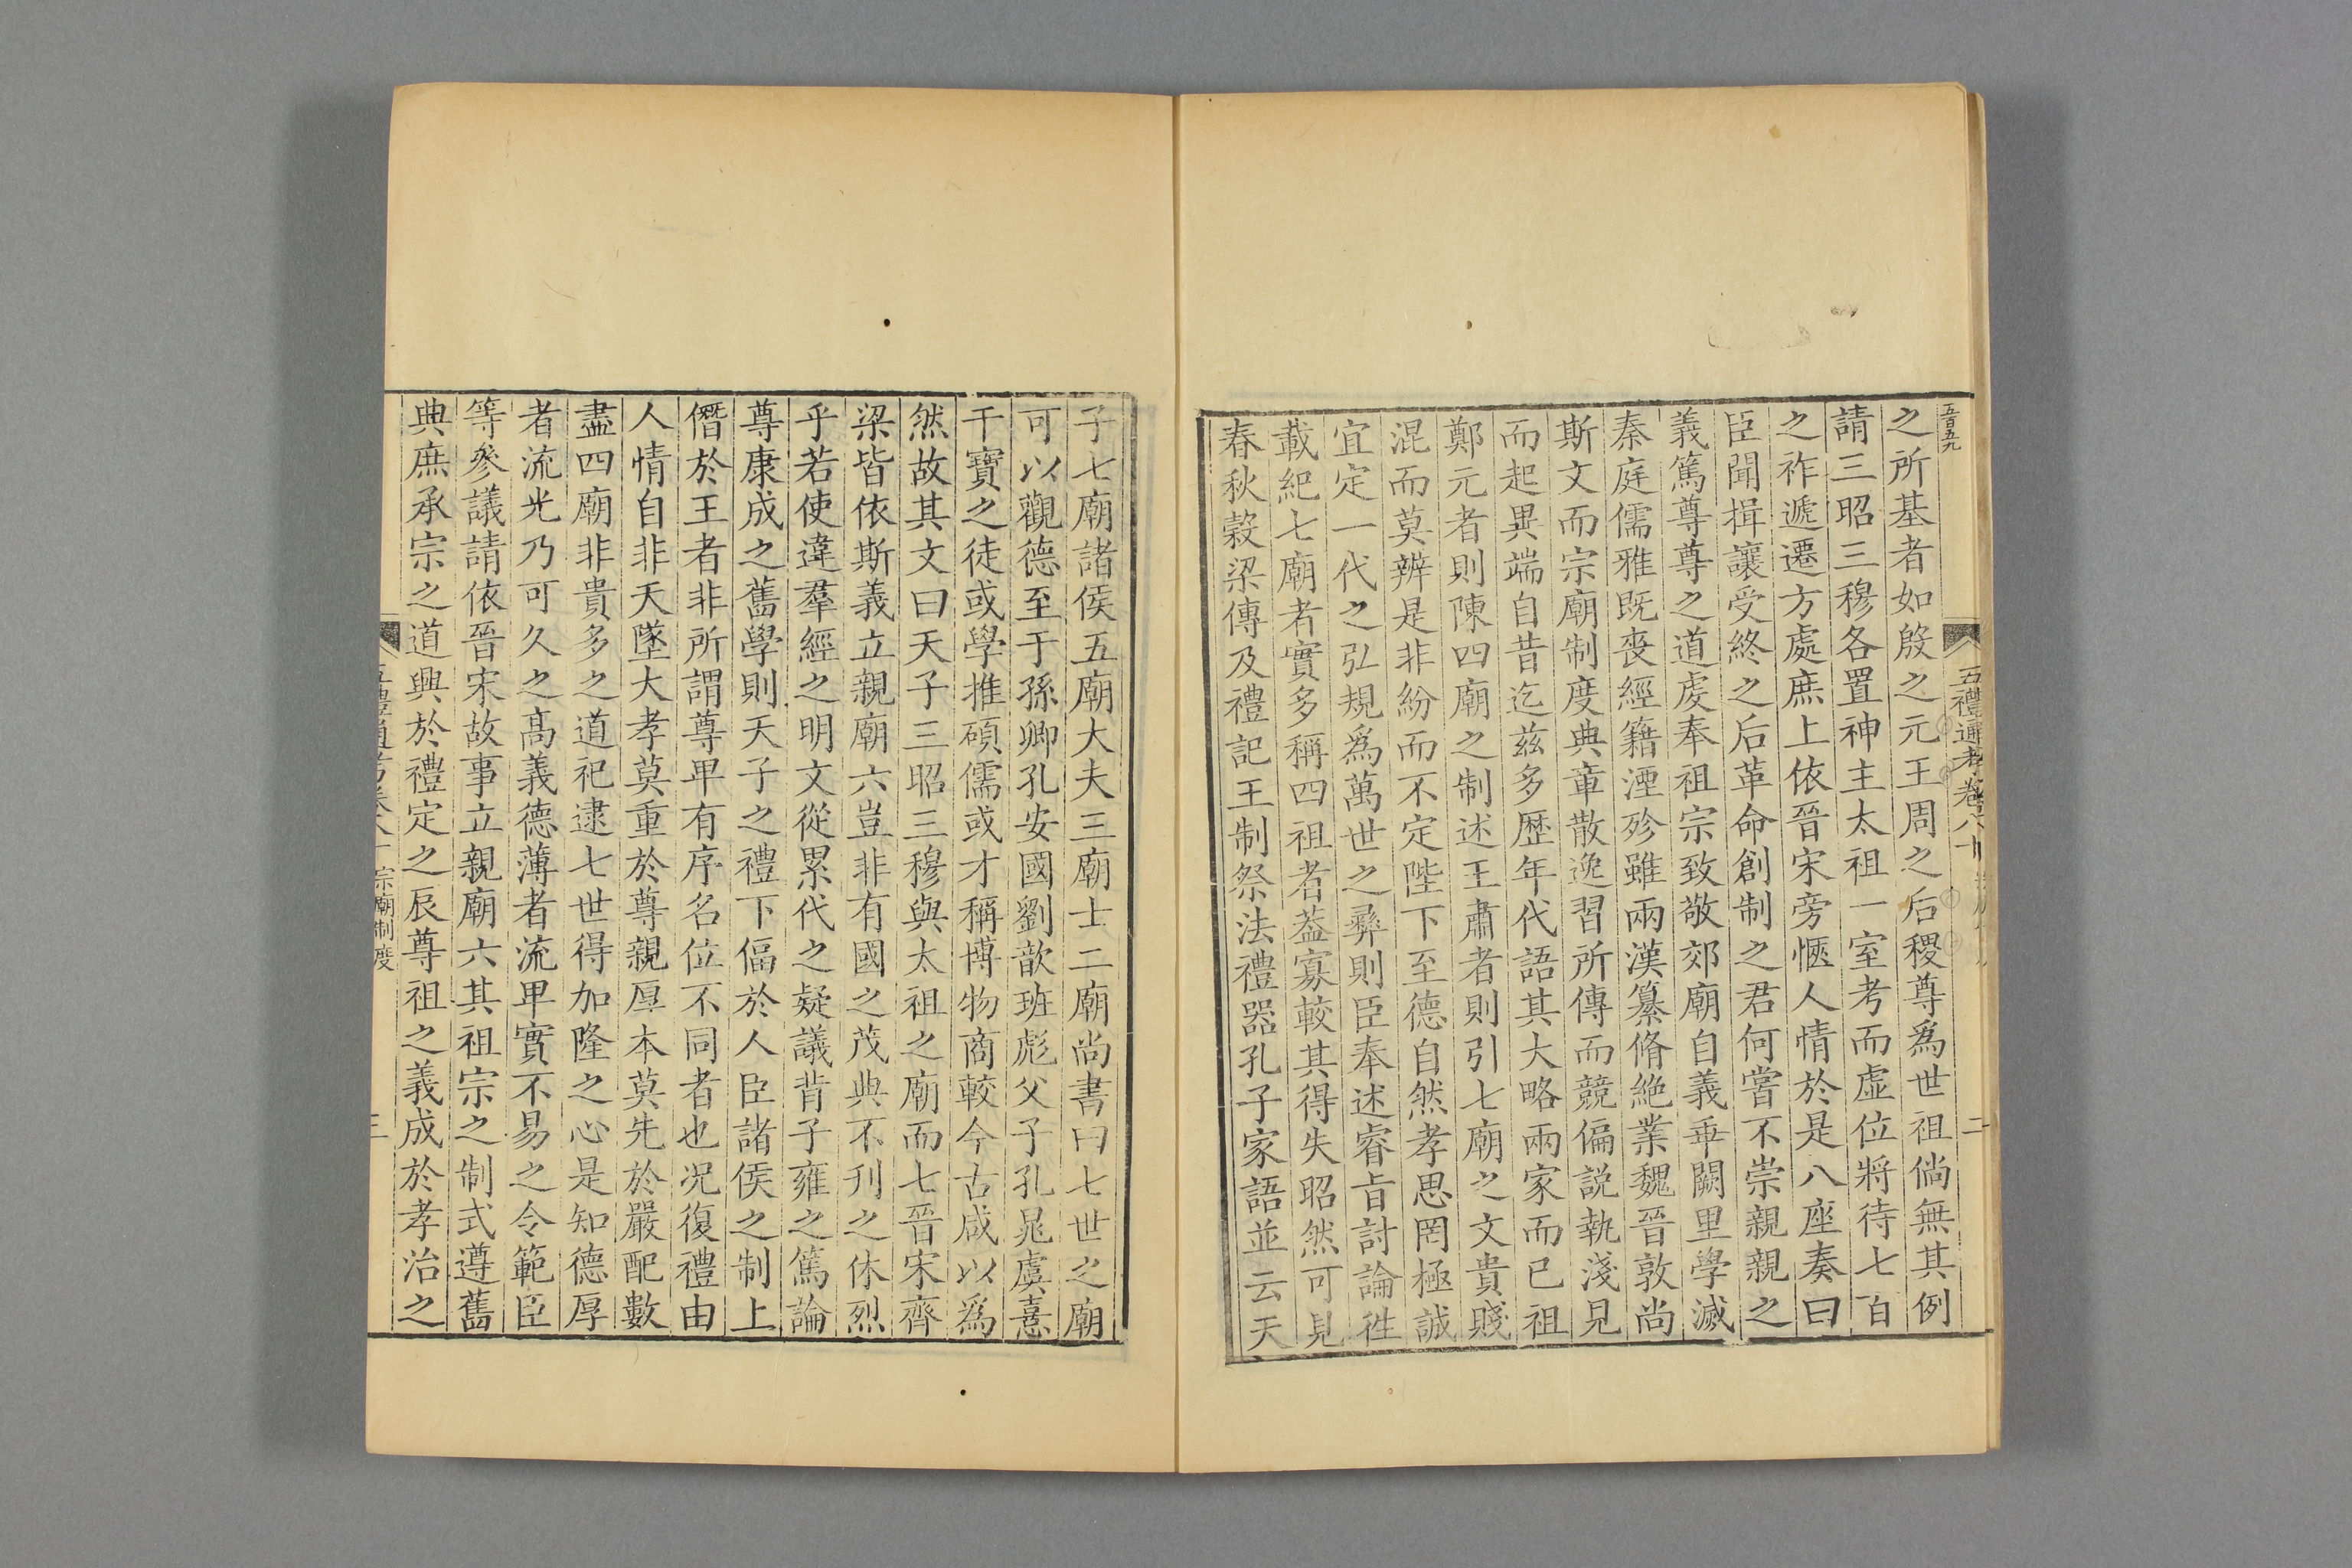 五百五九
五禮通考卷八十
二
之所基者如殷之元王周之后稷尊爲世祖倘無其例
請三昭三穆各置神主太祖一室考而虛位將待七百
之祚遞遷方處庶上依晉宋旁愜人情於是八座奏曰
臣聞揖讓受終之后革命創制之君何嘗不崇親親之
義篤尊尊之道虔奉祖宗致敬郊廟自義乖闕里學滅
秦庭儒雅既喪經籍湮殄雖兩漢纂脩絶業魏晉敦尚
斯文而宗廟制度典章散逸習所傳而競偏説執淺見
而起異端自昔迄兹多歴年代語其大略兩家而已祖
鄭元者則陳四廟之制述王肅者則引七廟之文貴賤
混而莫辨是非紛而不定陛下至德自然孝思罔極誠
宜定一代之弘規爲萬世之彝則臣奉述睿㫖討論徃
載紀七廟者實多稱四祖者葢寡較其得失昭然可見
春秋穀梁傳及禮記王制祭法禮器孔子家語並云天
子七廟諸侯五廟大夫三廟士二廟尚書曰七世之廟
可以觀德至于孫卿孔安國劉歆班彪父子孔晁虞憙
干寶之徒或學推碩儒或才稱博物商較今古咸以爲
然故其文曰天子三昭三穆與太祖之廟而七晉宋齊
梁皆依斯義立親廟六豈非有國之茂典不刋之休烈
乎若使違羣經之明文從累代之疑議背子雍之篤論
尊康成之舊學則天子之禮下偪於人臣諸侯之制上
僭於王者非所謂尊卑有序名位不同者也況復禮由
人情自非天墜大孝莫重於尊親厚本莫先於嚴配數
盡四廟非貴多之道祀逮七世得加隆之心是知德厚
者流光乃可久之髙義德薄者流卑實不易之令範臣
等參議請依晉宋故事立親廟六其祖宗之制式遵舊
典庶承宗之道興於禮定之辰尊祖之義成於孝治之
五禮通考卷八十 宗廟制度
三